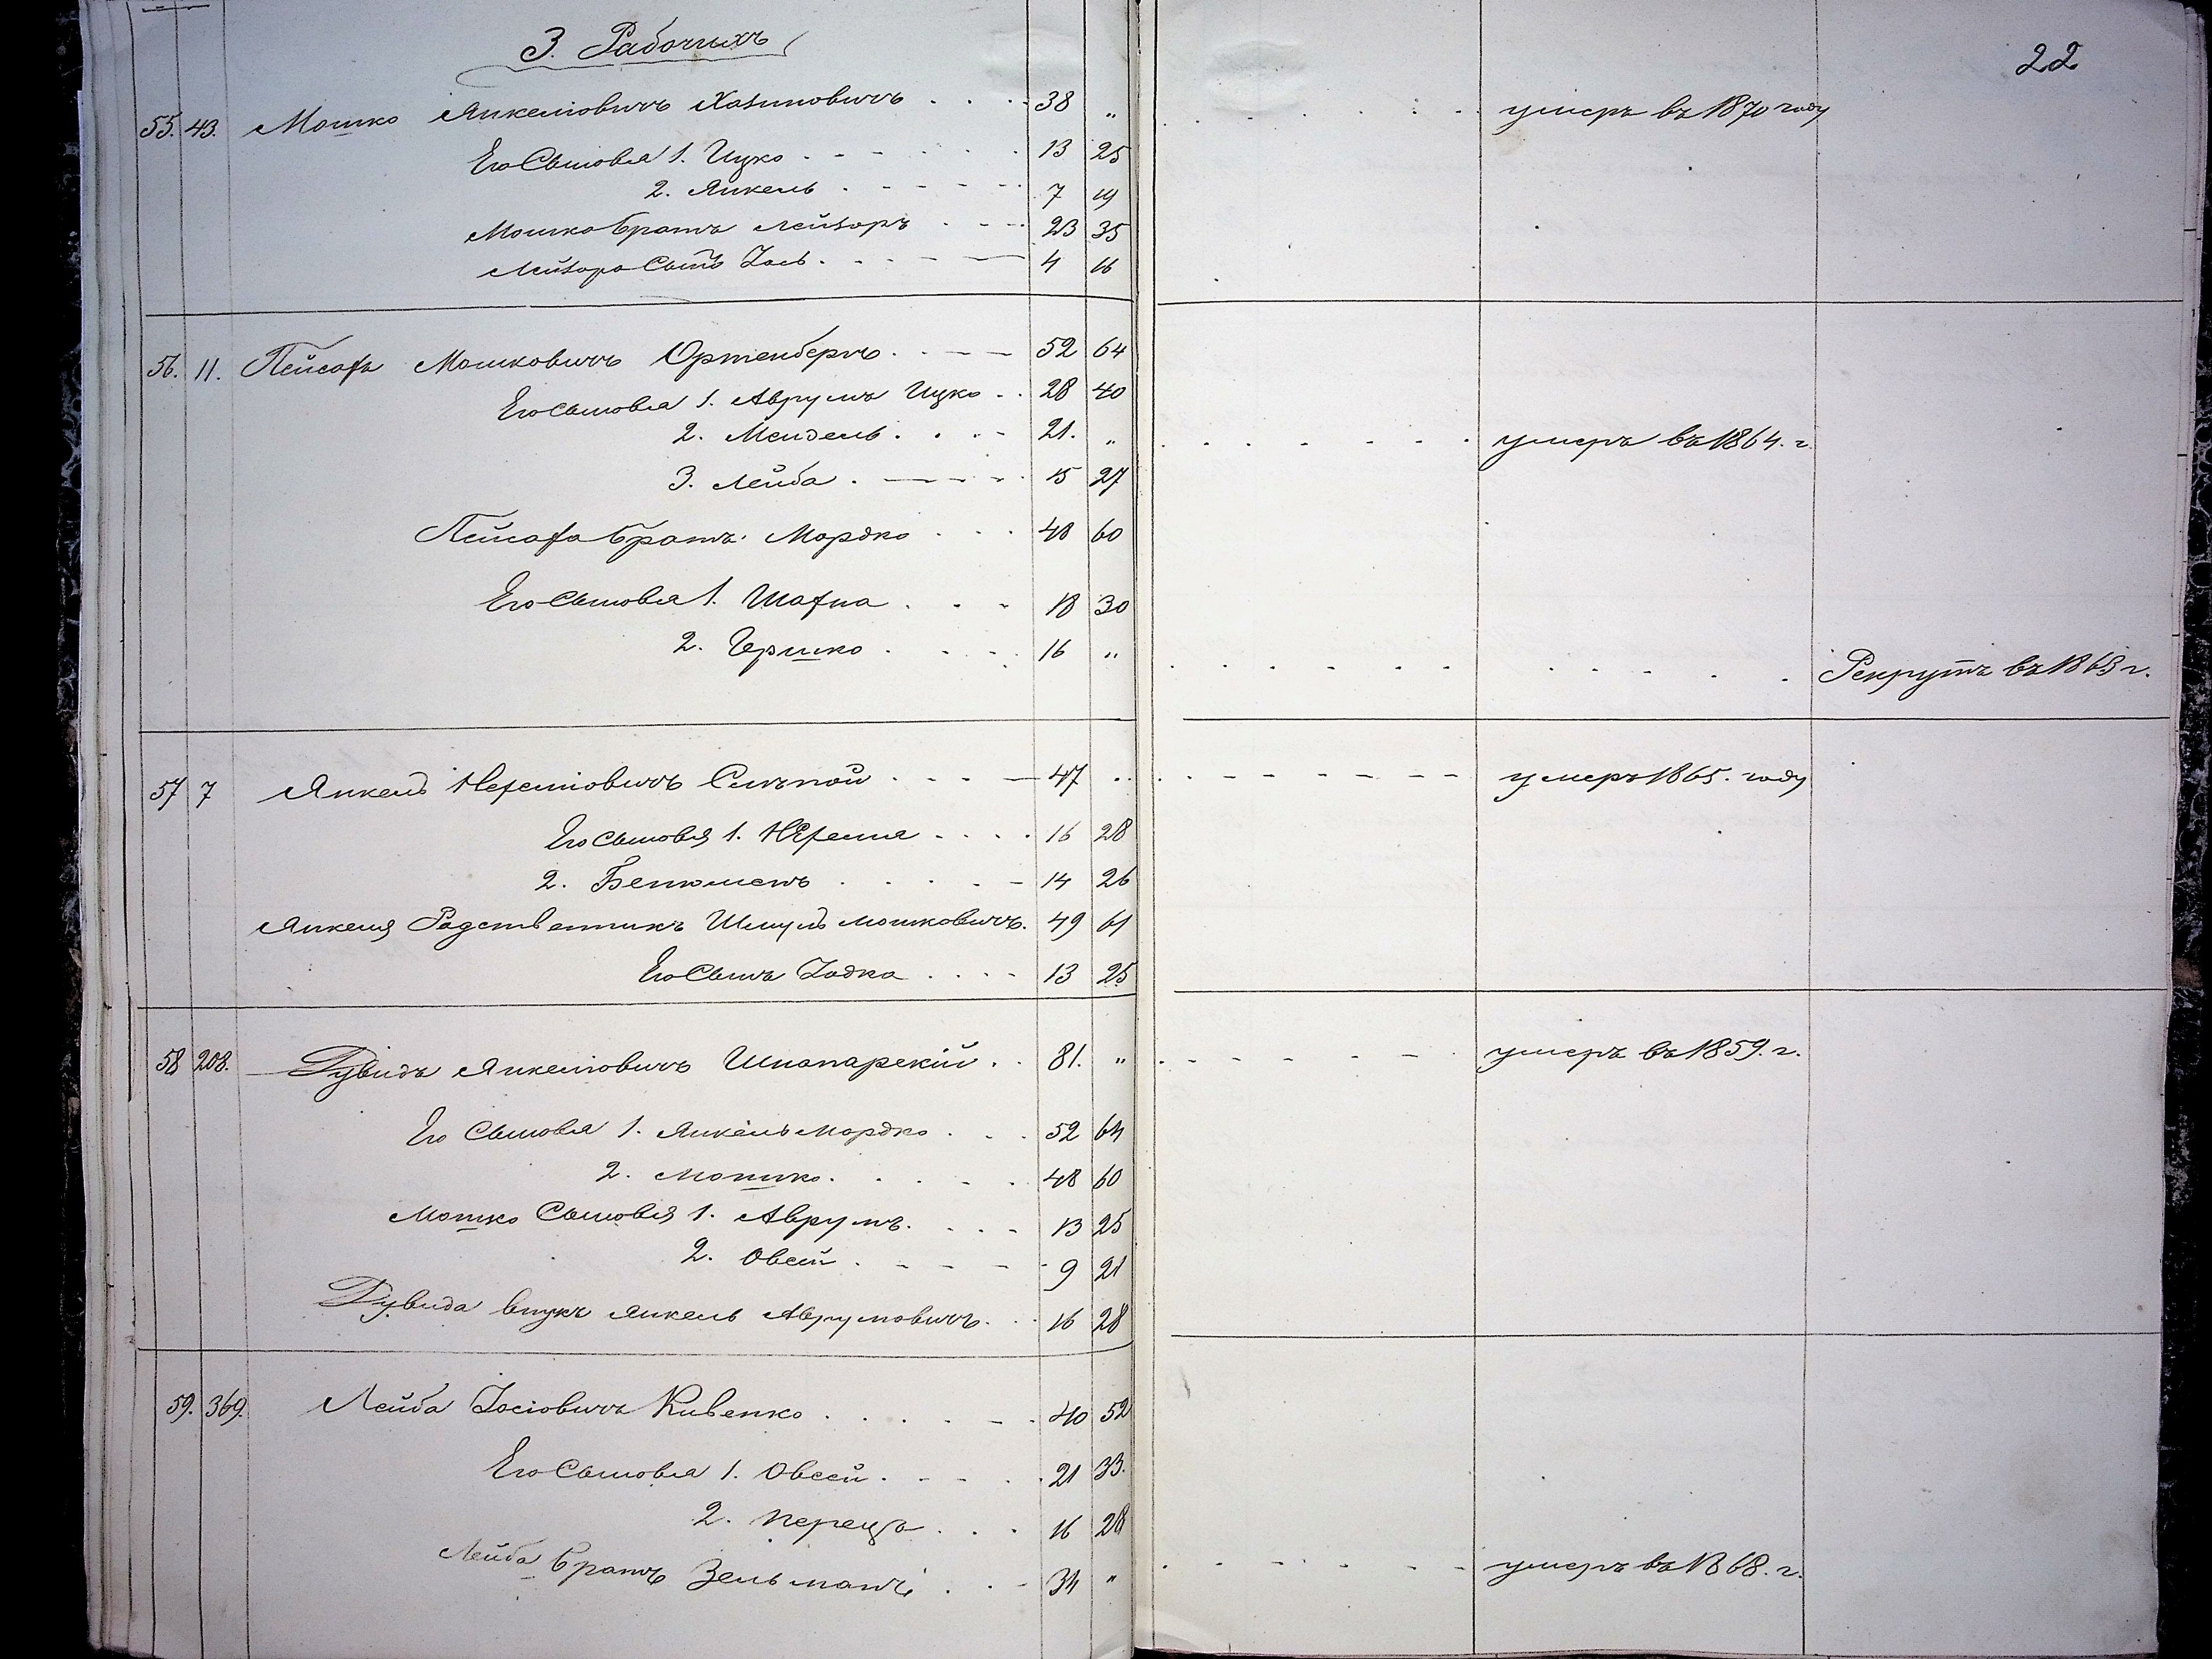 22
3. Рабочихъ
55. 43. Мошко Янкеліовичъ Хазиновичъ 38 „ умеръ въ 1870 году
Его Сыновья 1. Ицко 13 25
2. Янкель 7 19
Мошко братъ Лейзоръ 23 35
Лейзора Сынъ Іось 4 16
56. 11. Пейсахъ Мошковичъ Ортенбергъ 52 64
Его сыновья 1. Аврумъ Ицко 28 40
2. Мендель 21. „ умеръ въ 1864. г.
3. Лейба 15 27
Пейсаха братъ Мордко 48 60
Его Сыновья 1. Шахна 18 30
2. Гершко 16 „ Рекрутъ въ 1863 г.
57 7 Янкель Нехеміовичъ Слѣпой 47 „ умеръ 1865. году
Его сыновья 1. Нехемія 16 28
2. Беньюменъ 14 26
Янкеля Родственникъ Шмуль Мошковичъ 49 61
Его Сынъ Іодка 13 25
58 208. Дувидъ Янкеліовичъ Шполарскій 81. „ умеръ въ 1859. г.
Его Сыновья 1. Янкель Мордко 52 64
2. Мошко 48 60
Мошко Сыновья 1. Аврумъ 13 25
2. Овсей 9 21
Дувида внукъ Янкель Аврумовичъ 16 28
59. 369. Лейба Іосіовичъ Кивенко 40 52
Его Сыновья 1. Овсей 21 33.
2. Перецъ 16 28
Лейба братъ Зельманъ 34 „ умеръ въ 1868. г.